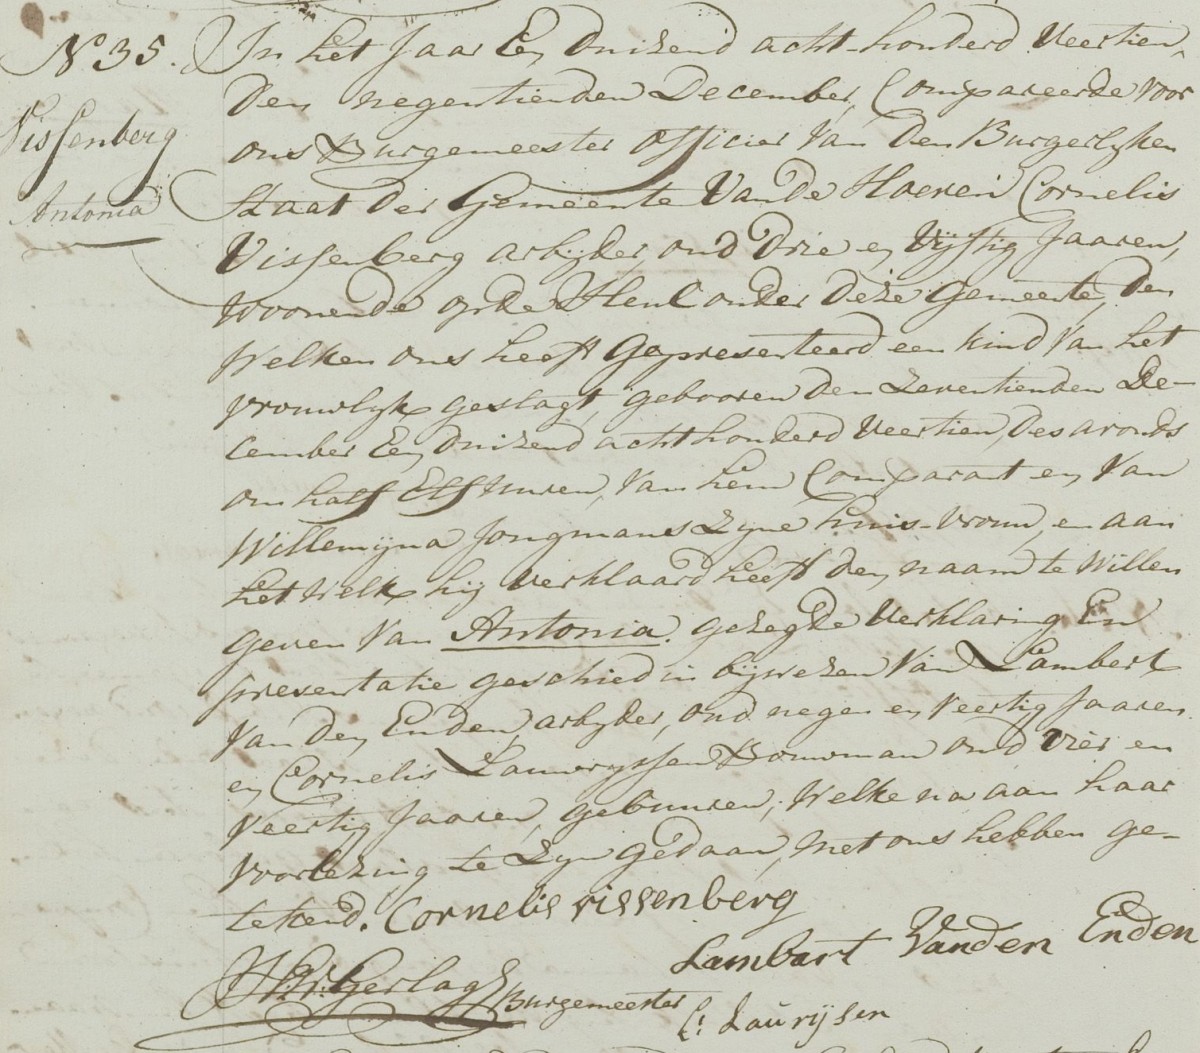 No 35.
Vissenberg
Antonia
In het Jaar Een Duizend acht-honderd Veertien,
Den negentienden December, Compareerde voor
ons Burgemeester officier Van Den Burgerlyken
Staat Der Gemeente Van De Cornelis
Vissenberg arbijder, oud Drie en Vijftig Jaaren,
woonende op de onder Deze Gemeente, Den
Welken ons heeft Gepresenteerd een kind Van het
vrouwlyk geslagt, gebooren Den Zeventienden De-
cember Een Duizend acht honderd Veertien, Des avonds
om half Elf uuren, Van hem Comparant en Van
Willemijna Jongmans Zyne huis-vrouw, en aan
het Welk hij Verklaard heeft Den naam te Willen
geven Van Antonia. gezegde Verklaring En
presentatie geschied in bijwezen Van Lambert
Van Den Enden, arbyder, oud negen en Veertig Jaaren
en Cornelis Lauwryssen Bouwman oud Vier en
Veertig Jaaren, gebuuren, Welke na aan haar
Voorlezing te Zyn gedaan, met ons hebben ge-
tekend. Cornelis vissenberg
Lambart Vanden Enden
Gerlags Burgemeester
C: Laurijsen